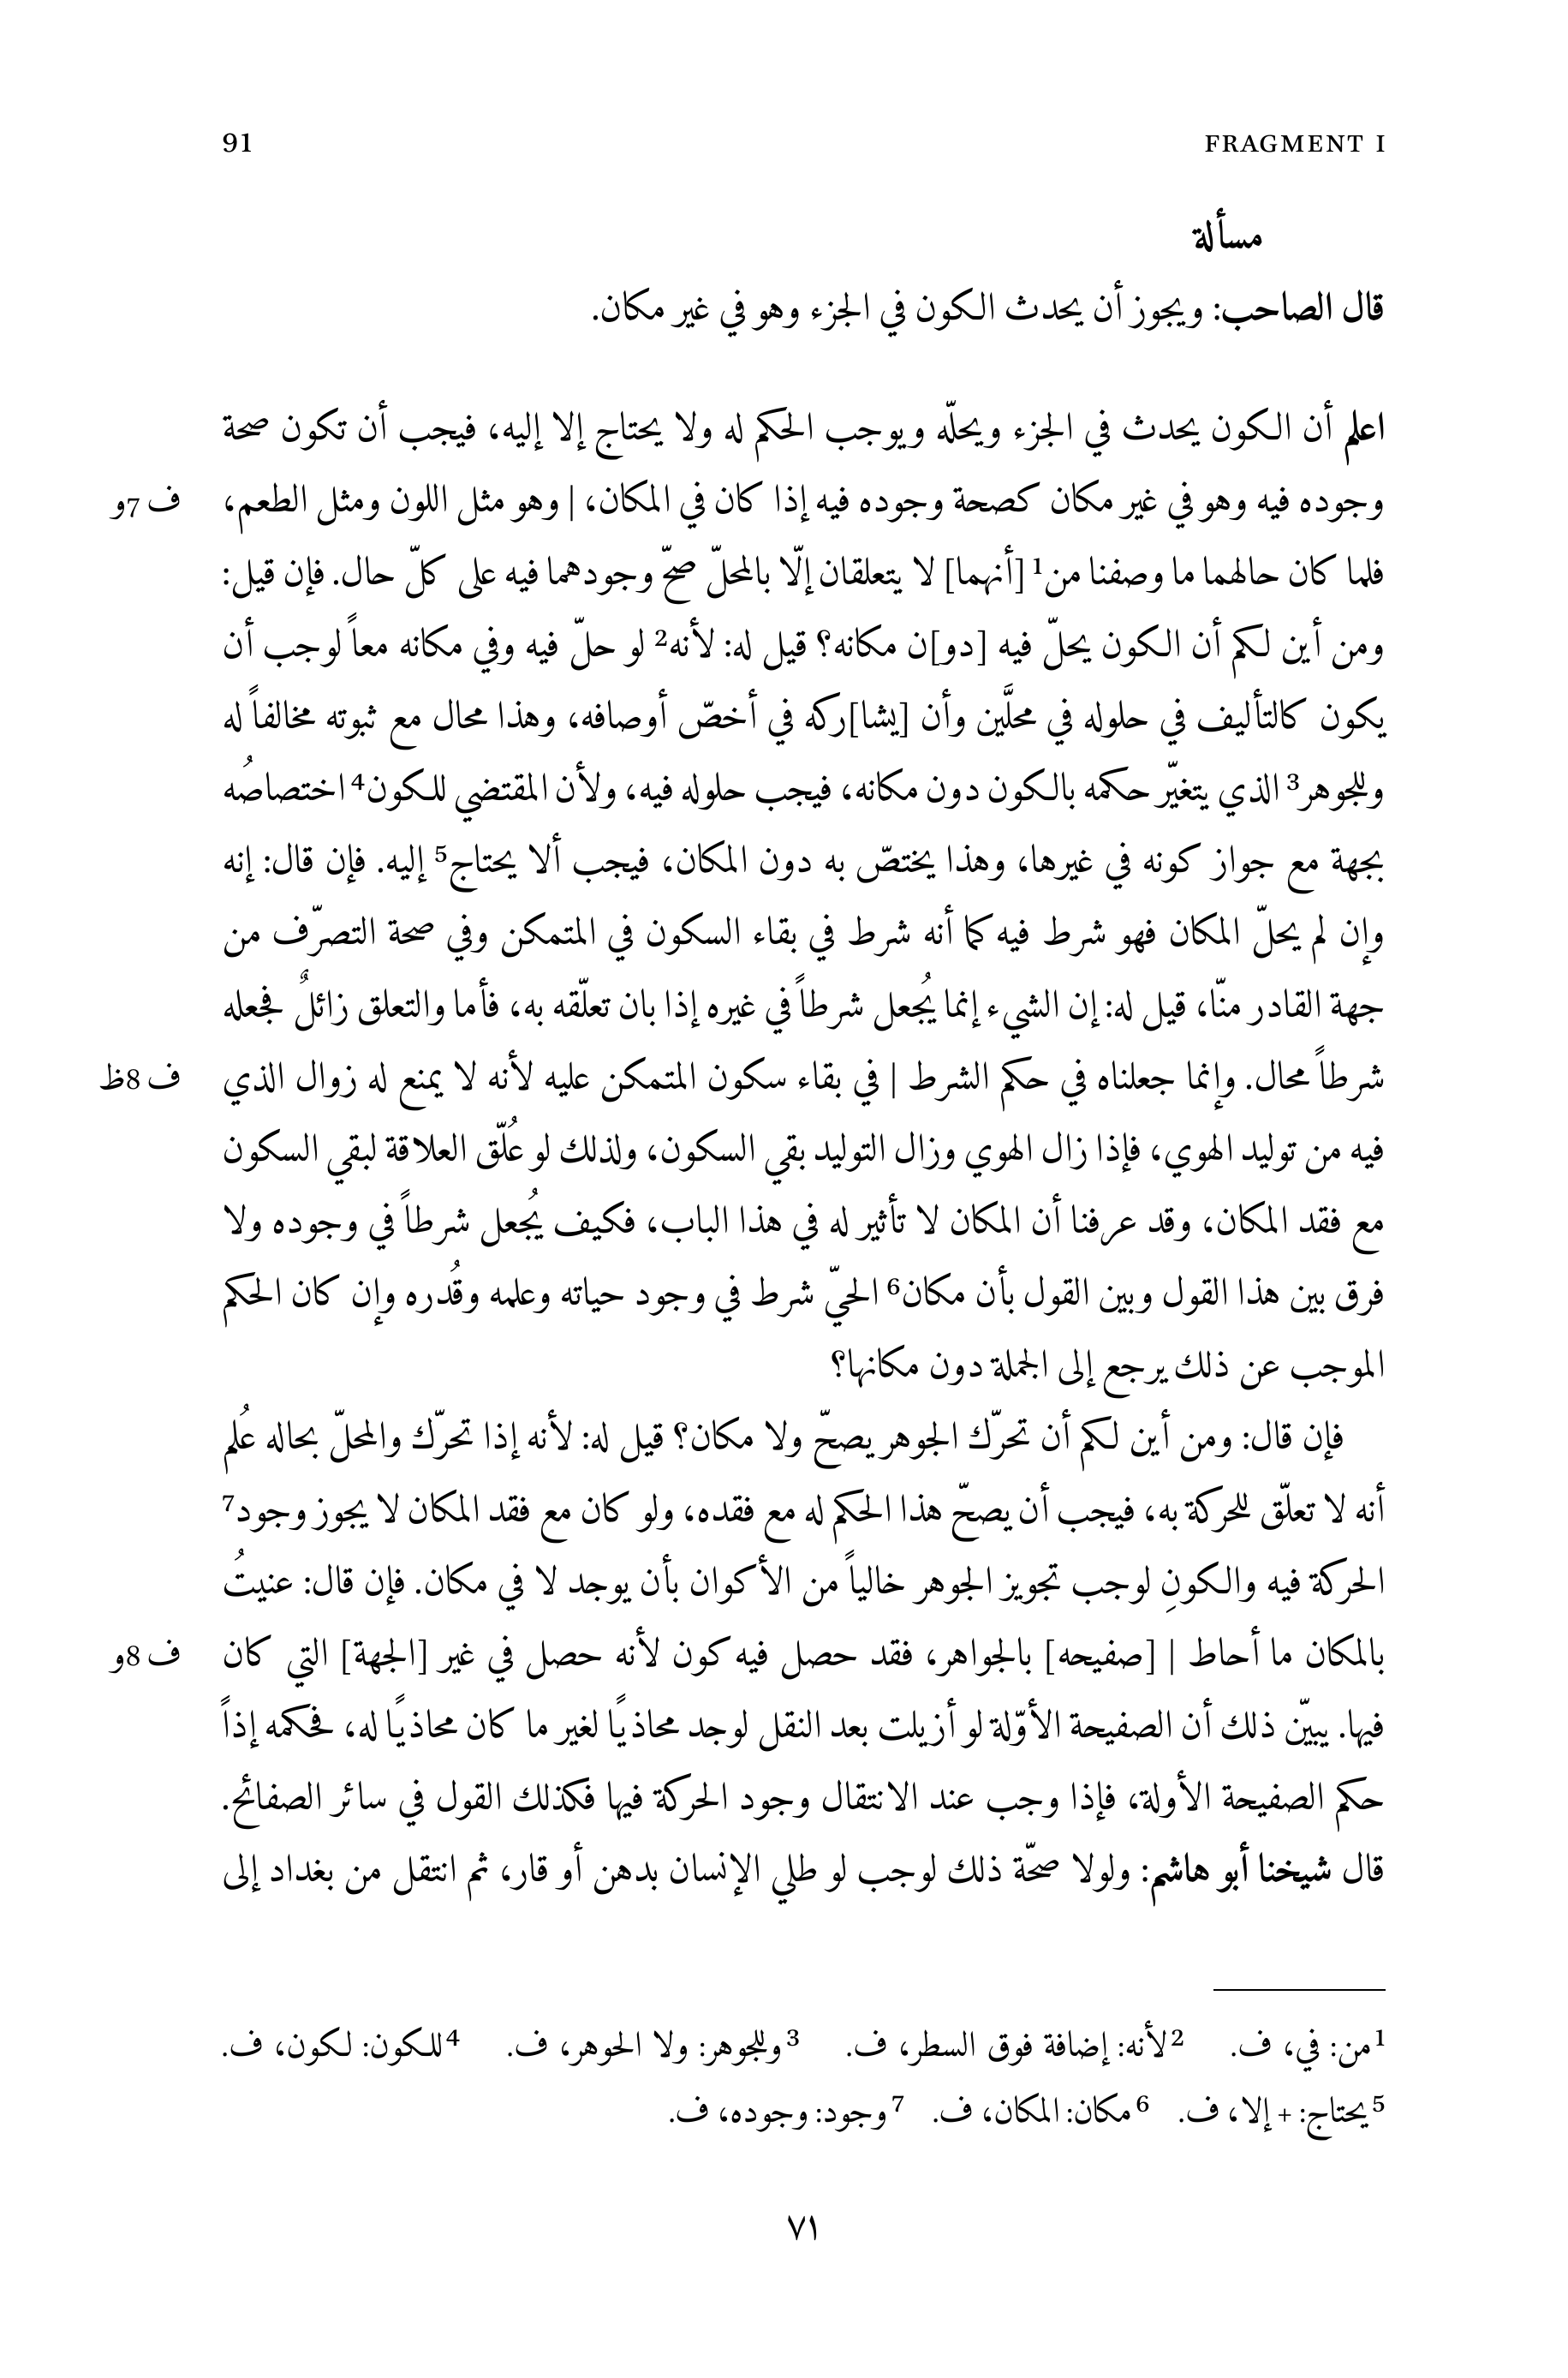 91 FRAGMENT I
مسألة
قال الصاحب: ويجوز أن يحدث الكون في الجزء وهو في غير مكان.
اعلم أن الكون يحدث في الجزء ويحلّه ويوجب الحكم له ولا يحتاج إلا إليه، فيجب أن تكون صحة
وجوده فيه وهو في غير مكان كصحة وجوده فيه إذا كان في المكان، | وهو مثل اللون ومثل الطعم، ف 7و
فلما كان حالهما ما وصفنا من¹ [أنهما] لا يتعلقان إلّا بالمحلّ صحّ وجودهما فيه على كلّ حال. فإن قيل:
ومن أين لكم أن الكون يحلّ فيه [دو]ن مكانه؟ قيل له: لأنه² لو حلّ فيه وفي مكانه معاً لوجب أن
يكون كالتأليف في حلوله في محلَّين وأن [يشا]ركه في أخصّ أوصافه، وهذا محال مع ثبوته مخالفاً له
وللجوهر³ الذي يتغيّر حكمه بالكون دون مكانه، فيجب حلوله فيه، ولأن المقتضي للكون⁴ اختصاصُه
بجهة مع جواز كونه في غيرها، وهذا يختصّ به دون المكان، فيجب ألا يحتاج⁵ إليه. فإن قال: إنه
وإن لم يحلّ المكان فهو شرط فيه كما أنه شرط في بقاء السكون في المتمكن وفي صحة التصرّف من
جهة القادر منّا، قيل له: إن الشيء إنما يُجعل شرطاً في غيره إذا بان تعلّقه به، فأما والتعلق زائلٌ فجعله
شرطاً محال. وإنما جعلناه في حكم الشرط | في بقاء سكون المتمكن عليه لأنه لا يمنع له زوال الذي ف 8ظ
فيه من توليد الهوي، فإذا زال الهوي وزال التوليد بقي السكون، ولذلك لو عُلّق العلاقة لبقي السكون
مع فقد المكان، وقد عرفنا أن المكان لا تأثير له في هذا الباب، فكيف يُجعل شرطاً في وجوده ولا
فرق بين هذا القول وبين القول بأن مكان⁶ الحيّ شرط في وجود حياته وعلمه وقُدره وإن كان الحكم
الموجب عن ذلك يرجع إلى الجملة دون مكانها؟
فإن قال: ومن أين لكم أن تحرّك الجوهر يصحّ ولا مكان؟ قيل له: لأنه إذا تحرّك والمحلّ بحاله عُلم
أنه لا تعلّق للحركة به، فيجب أن يصحّ هذا الحكم له مع فقده، ولو كان مع فقد المكان لا يجوز وجود⁷
الحركة فيه والكونِ لوجب تجويز الجوهر خالياً من الأكوان بأن يوجد لا في مكان. فإن قال: عنيتُ
بالمكان ما أحاط | [صفيحه] بالجواهر، فقد حصل فيه كون لأنه حصل في غير [الجهة] التي كان ف 8و
فيها. يبيّن ذلك أن الصفيحة الأوّلة لو أزيلت بعد النقل لوجد محاذيًا لغير ما كان محاذيًا له، فحكمه إذاً
حكم الصفيحة الأولة، فإذا وجب عند الانتقال وجود الحركة فيها فكذلك القول في سائر الصفائح.
قال شيخنا أبو هاشم: ولولا صحّة ذلك لوجب لو طلي الإنسان بدهن أو قار، ثم انتقل من بغداد إلى
¹من: في، ف. ²لأنه: إضافة فوق السطر، ف. ³وللجوهر: ولا الحوهر، ف. ⁴للكون: لكون، ف.
⁵يحتاج: + إلا، ف. ⁶مكان: المكان، ف. ⁷وجود: وجوده، ف.
٧١